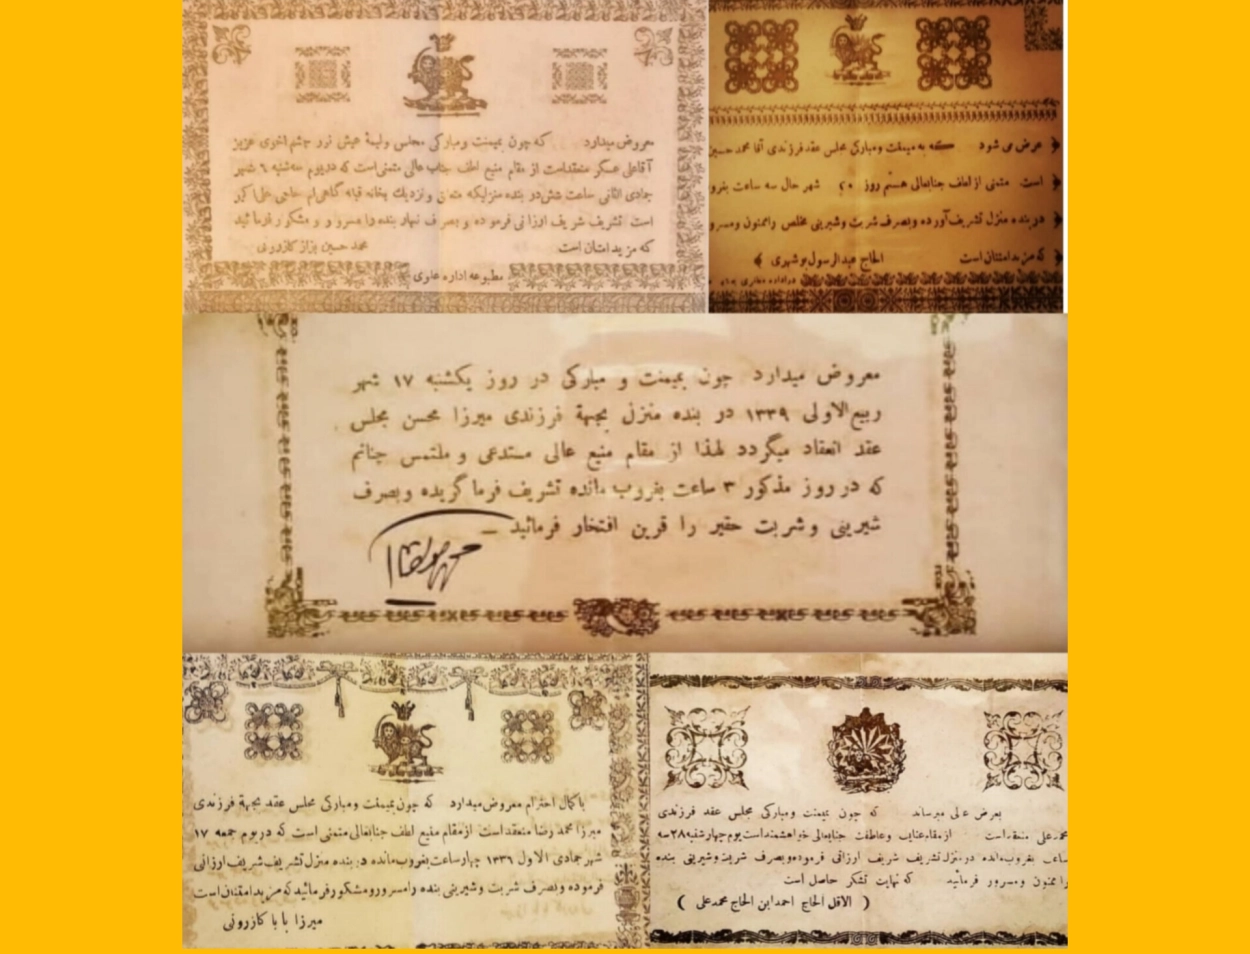 معروض میدارد که چون بمیمنت ومبارکی مجلس ولیمهٔ عیش نور چشم اخوی عزیز
آقاعلی عسکر منعقداست از مقام منیع لطف جناب عالی متمنی است که دریوم سه‌شنبه ٦ شهر
جمادی الثانی ساعت شش در بنده منزلیکه نزدیك بخانه قبله گاهی‌ام حاجی علی اکبر
است تشریف شریف ارزانی فرموده وبصرف نهار بنده را مسرور و مشکور فرمائید
که مزید امتنان است محمد حسین بزاز کازرونی
مطبوعه اداره علوی
عرض می شود که به میمنت ومبارکی مجلس عقد فرزندی آقا محمد حسین
است متمنی از لطف جنابعالی هستم روز شهر حال سه ساعت بغرو
دربنده منزل تشریف آورده وبصرف شربت وشیرینی مخلص راممنون ومسرو
که مزید امتنان است الحاج عبدالرسول بوشهری
معروض میدارد چون بمیمنت و مبارکی در روز یکشنبه ١٧ شهر
ربیع الاولی ١٣٣٩ در بنده منزل بجهة فرزندی میرزا محسن مجلس
عقد انعقاد میگردد لهذا از مقام منیع عالی مستدعی و ملتمس چنانم
که در روز مذکور ٣ ساعت بغروب مانده تشریف فرما گردیده وبصرف
شیرینی وشربت حقیر را قرین افتخار فرمائید ــ
باکمال احترام معروض میدارد که چون بمیمنت ومبارکی مجلس عقد بجهة فرزندی
میرزا محمد رضا منعقداست ازمقام منیع لطف جنابعالی متمنی است که دریوم جمعه ١٧
شهر جمادی الاول ١٣٣٦ چهارساعت بغروب مانده در بنده منزل تشریف شریف ارزانی
فرموده وبصرف شربت وشیرینی بنده رامسرور ومشکورفرمائید که مزید امتنان است
میرزا بابا کازرونی
بعرض عالی میرساند که چون بمیمنت ومبارکی مجلس عقد فرزندی
محمدعلی منعقداست ازمقام عنایت وعاطفت جنابعالی خواهشمنداست یوم چهارشنبه ٢٨ سه
ساعت بغروب مانده درمنزل تشریف شریف ارزانی فرموده وبصرف شربت وشیرینی بنده
را ممنون ومسرور فرمائید که نهایت تشکر حاصل است
( الاقل الحاج احمد ابن الحاج محمدعلی )